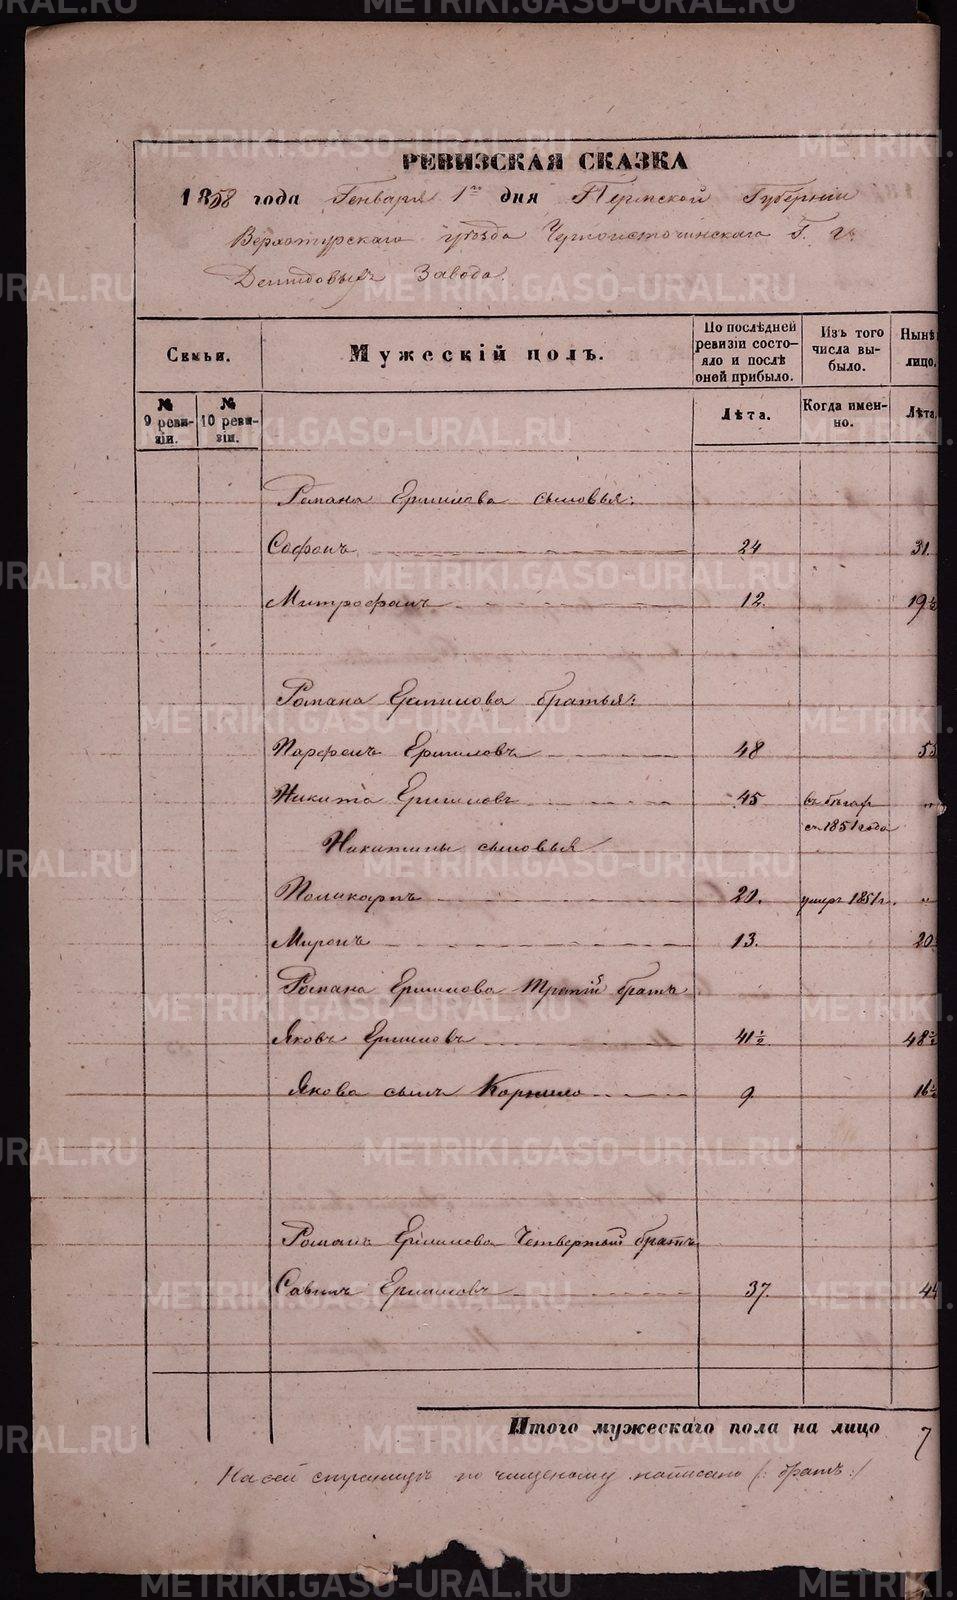 РЕВИЗСКАЯ СКАЗКА
1858 года Генваря 1го дня Пермской Губернии
Верхотурскаго уѣзда Черноисточинскаго Г. г.
Демидовыхъ Завода.
Семьи.
Мужескій полъ.
По послѣдней ревизіи состояло и послѣ оней прибыло.
Изъ того числа выбыло.
Нынѣ лицо.
№ 9 ревизіи.
№ 10 ревизіи.
Лѣта.
Когда именно.
Лѣта
Романа Ермилова сыновья:
Софонъ 24 31.
Митрофанъ 12. 19½
Романа Ермилова братья:
Парфенъ Ермиловъ 48 55
Никита Ермиловъ 45 въ бѣгах съ 1851 года „
Никитины сыновья
Поликарпъ 20. умеръ 1851 г. „
Миронъ 13. 20
Романа Ермилова Третій братъ
Яковъ Ермиловъ 41½ 48½
Якова сынъ Корнило 9 16½
Романа Ермилова Четвертый братъ
Савинъ Ермиловъ 37. 44
Итого мужескаго пола на лицо 7
На сей страницѣ по чищеному написано (: братъ :)
METRIKI.GASO-URAL.RU